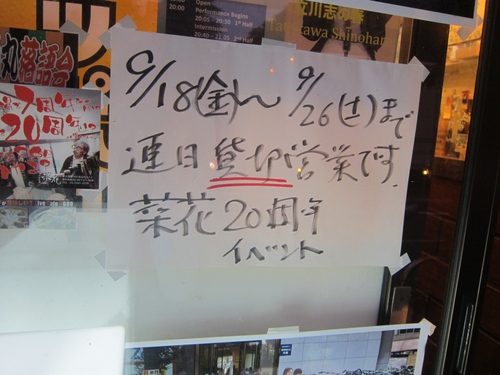 立川志の春
Tatekawa Shinoharu
Open
Performance Begins
20:00
20:05 - 20:35 1st Half
Intermission
20:40 - 21:05 2nd Half
落語会
9/18(金)〜9/26(土)まで
連日貸切営業です。
菜花20周年
イベント